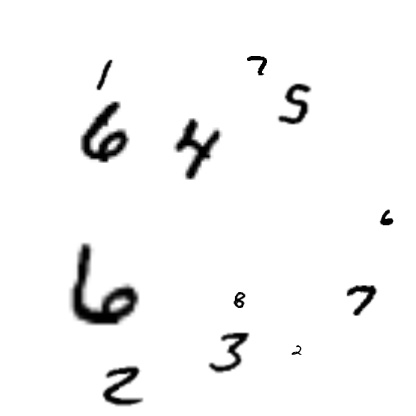 1 7
6 4 5
6
6 8 7
2 3 2